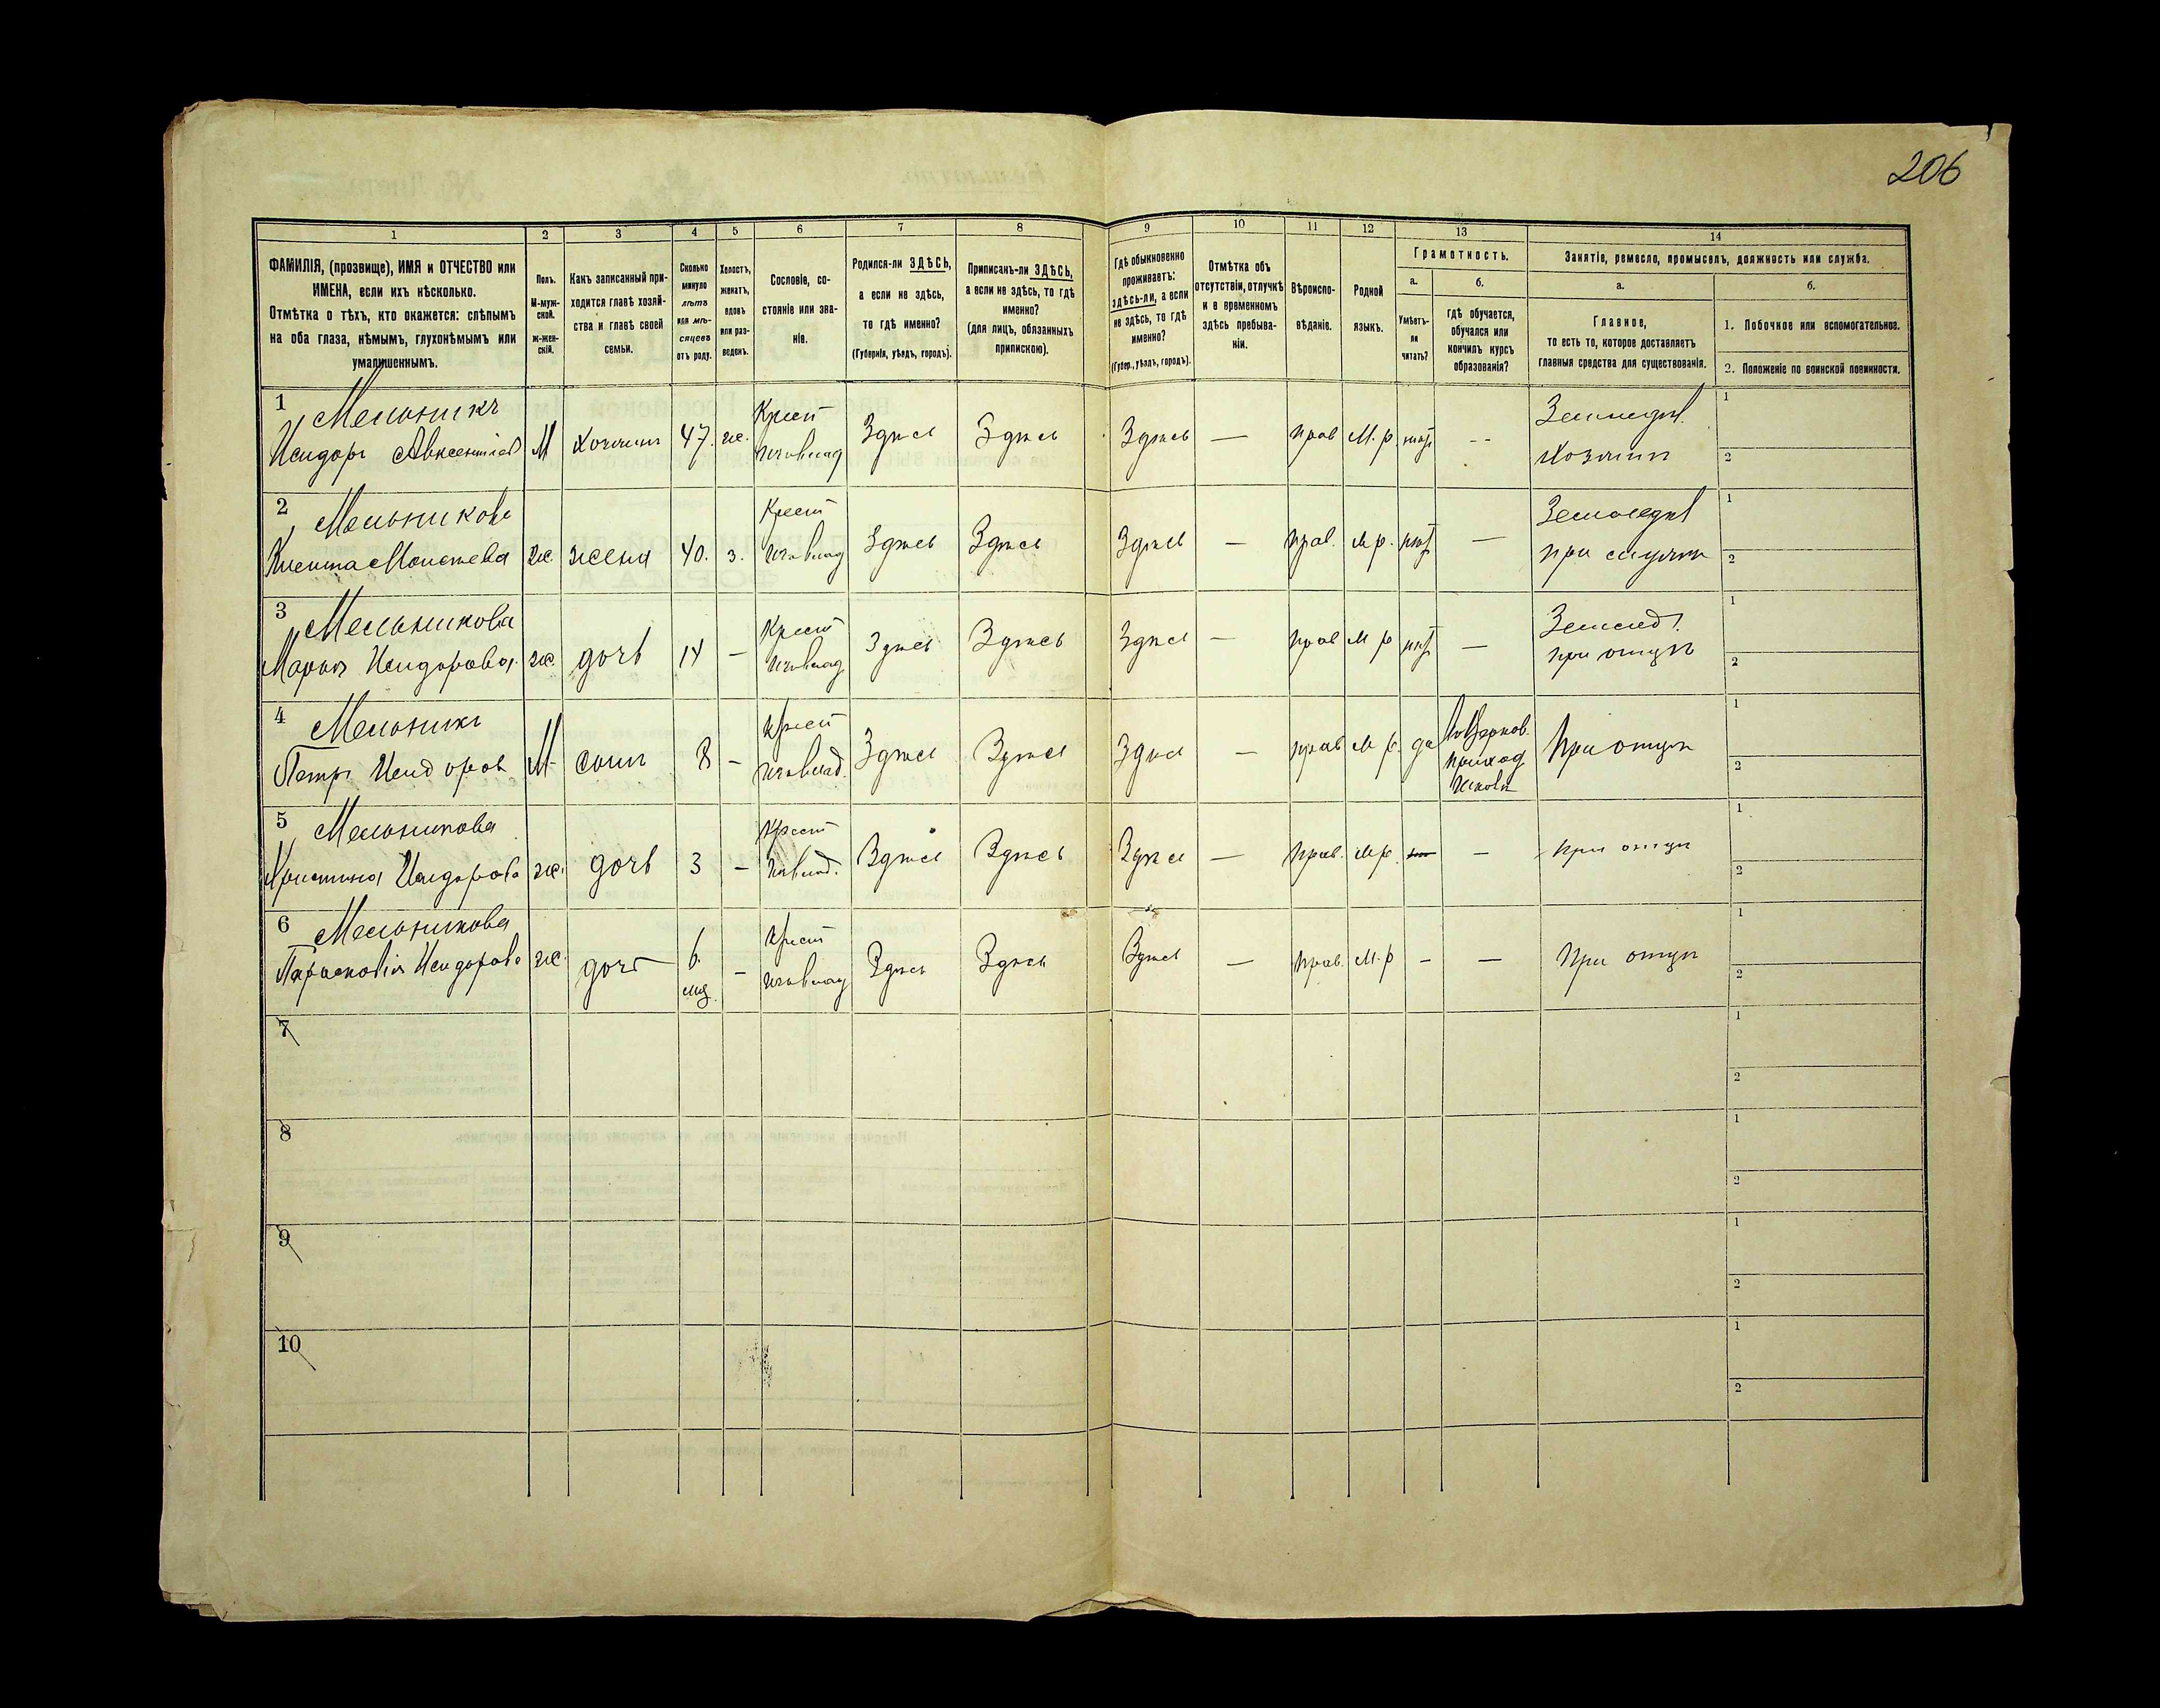 206
1 2 3 4 5 6 7 8 9 10 11 12 13 14
ФАМИЛІЯ, (прозвище), ИМЯ и ОТЧЕСТВО или
ИМЕНА, если ихъ нѣсколько.
Отмѣтка о тѣхъ, кто окажется: слѣпымъ
на оба глаза, нѣмымъ, глухонѣмымъ или
умалишеннымъ.
Полъ.
М-муж-
ской.
ж-жен-
скій.
Какъ записанный при-
ходится главѣ хозяй-
ства и главѣ своей
семьи.
Сколько
минуло
лѣтъ
или мѣ-
сяцевъ
отъ роду.
Холостъ,
женатъ,
вдовъ
или раз-
веденъ.
Сословіе, со-
стояніе или зва-
ніе.
Родился-ли ЗДѢСЬ,
а если не здѣсь,
то гдѣ именно?
(Губернія, уѣздъ, городъ).
Приписанъ-ли ЗДѢСЬ,
а если не здѣсь, то гдѣ
именно?
(для лицъ, обязанныхъ
припискою).
Гдѣ обыкновенно
проживаетъ:
здѣсь-ли, а если
не здѣсь, то гдѣ
именно?
(Губер., уѣздъ, городъ).
Отмѣтка объ
отсутствіи, отлучкѣ
и о временномъ
здѣсь пребыва-
ніи.
Вѣроиспо-
вѣданіе.
Родной
языкъ.
Грамотность.
а.
Умѣетъ-
ли
читать?
б.
гдѣ обучается,
обучался или
кончилъ курсъ
образованія?
Занятіе, ремесло, промыселъ, должность или служба.
а.
Главное,
то есть то, которое доставляетъ
главныя средства для существованія.
б.
1. Побочное или вспомогательное.
2. Положеніе по воинской повинности.
1 Мельникъ Крест Земледѣл. 1
Исидоръ Авксентіев М хозяинъ 47. же. Здѣсь Здѣсь Здѣсь — прав М. р. нѣтъ -- хозяинъ 2
2 Мельникова Крест Земледѣл 1
Моисеева же. жена 40. з. Здѣсь Здѣсь Здѣсь — прав. м р. нѣтъ — при мужѣ 2
3 Мельникова Крест Землед. 1
Марья Исидорова же. дочь 14 — Здѣсь Здѣсь Здѣсь — прав м р нѣтъ — при отцѣ 2
4 Мельникъ Крест 1
Петръ Исидоров М сынъ 8 — Здѣсь Здѣсь Здѣсь — прав м р. да Въ Церков.
приход
школѣ При отцѣ 2
5 Мельникова Крест 1
Христина Исидорова же. дочь 3 — Здѣсь Здѣсь Здѣсь — прав. м р. — При отцѣ 2
6 Мельникова Крест 1
Парасковія Исидорова же. дочь 6. мѣс. — Здѣсь Здѣсь Здѣсь — прав. м. р — — При отцѣ 2
7 1
2
8 1
2
9 1
2
10 1
2